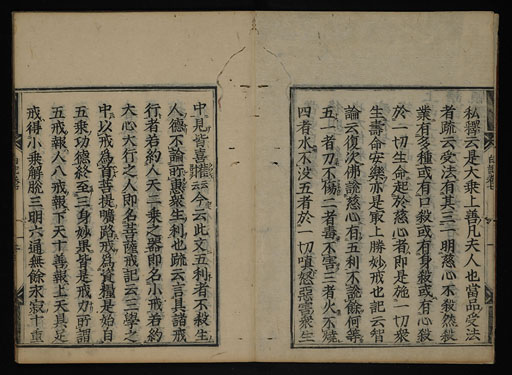 私釋云是大乘上善凡夫人也當品受法
者疏云受法有其三一明慈心不殺然殺
業有多種或有口殺或有身殺或有心殺
於一切生命起於慈心者即是施一切衆
生壽命安樂亦是最上勝妙戒也記云智
論云復次佛說慈心有五利不說餘何等
五一者刀不傷二者毒不害三者火不燒
四者水不没五者於一切嗔怒惡害衆生
中見皆喜 云云今云此文五利者不殺生
人德不論所惠衆生利也疏云言其諸戒
行者若約人天二乘之器即名小戒若約
大心大行之人即名菩薩戒記云三學之
中以戒為首菩提曠路戒為資糧是始自
五乘功德終至三身妙果皆是戒力所謂
五戒報人八戒報下天十善報上天具足
戒得小乘解脫三明六通無餘永寂十重